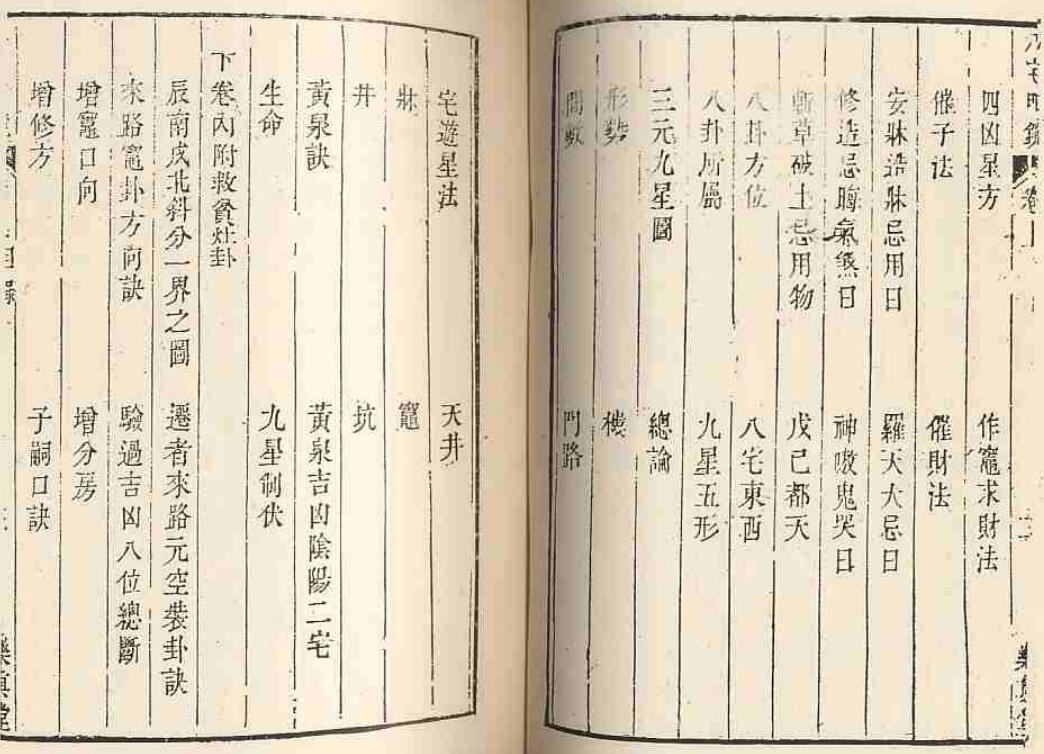 八宅明鏡
四凶星方 作竈求財法
催子法 催財法
安牀造牀忌用日 羅天大忌日
修造忌晦氣煞日 神嗷鬼哭日
斬草破土忌用物 戊己都天
八卦方位 八宅東西
八卦所屬 九星五形
三元九星圖 總論
形勢 樓
間數 門路
宅遊星法 天井
牀 竈
井 坑
黃泉訣 黃泉吉凶陰陽二宅
生命 九星制伏
下卷內附救貧灶卦
辰南戌北斜分一界之圖 遷者來路元空裝卦訣
來路竈卦方向訣 驗過吉凶八位總斷
增竈口向 增分房
增修方 子嗣口訣
樂真堂